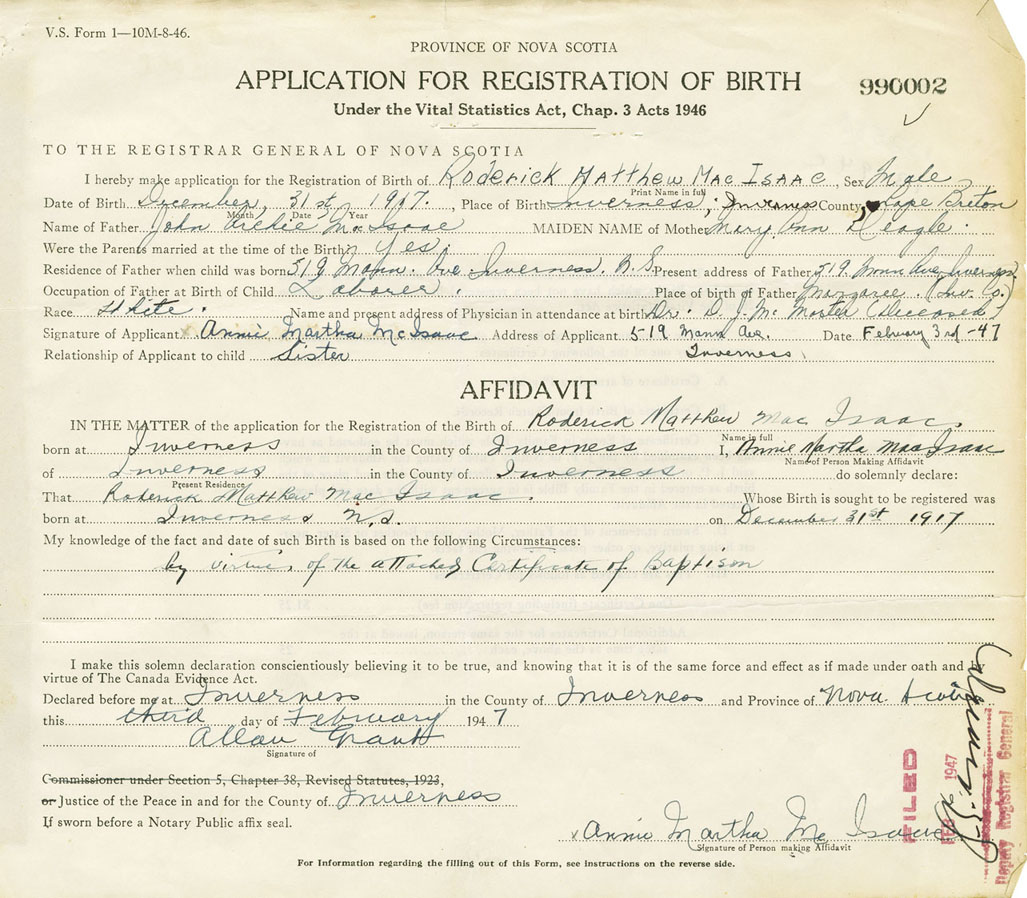 V.S. Form 1—10M-8-46.
PROVINCE OF NOVA SCOTIA
APPLICATION FOR REGISTRATION OF BIRTH 990002
Under the Vital Statistics Act, Chap. 3 Acts 1946
TO THE REGISTRAR GENERAL OF NOVA SCOTIA
I hereby make application for the Registration of Birth of Roderick Matthew Mac Isaac, Sex Male
Print Name in full
Date of Birth December, 31st, 1917. , Place of Birth Inverness; Inverness County, Cape Breton
Month Date Year
Name of Father John Archie MacIsaac MAIDEN NAME of Mother Mary Ann Deagle.
Were the Parents married at the time of the Birth? Yes.
Residence of Father when child was born 519 Mann. Ave Inverness. Present address of Father 519 Mann Ave, Inverness
Occupation of Father at Birth of Child Laborer. Place of birth of Father Margaree. (Inv. Co.)
Race White. Name and present address of Physician in attendance at birth Dr. D. J. Mc Master (Deceased)
Signature of Applicant x Annie Martha McIsaac Address of Applicant 519 Mann Ave. Date Febuary 3rd -47
Relationship of Applicant to child Sister Inverness
AFFIDAVIT
IN THE MATTER of the application for the Registration of the Birth of Roderick Matthew Mac Isaac.
Name in full
born at Inverness in the County of Inverness I, Annie Martha MacIsaac
Name of Person Making Affidavit
of Inverness in the County of Inverness do solemnly declare:
Present Residence
That Roderick Matthew Mac Isaac. Whose Birth is sought to be registered was
born at Inverness N.S. on December 31st 1917
My knowledge of the fact and date of such Birth is based on the following Circumstances:
by virtue of the attached Certificate of Baptism
I make this solemn declaration conscientiously believing it to be true, and knowing that it is of the same force and effect as if made under oath and by
virtue of The Canada Evidence Act.
Declared before me at Inverness in the County of Inverness and Province of Nova Scotia
this third day of February 1947
Allan Grant
Signature of
Commissioner under Section 5, Chapter 38, Revised Statutes, 1923,
or Justice of the Peace in and for the County of Inverness
If sworn before a Notary Public affix seal.
x Annie Martha Mc Isaac
Signature of Person making Affidavit
FILED
FEB 1947
Deputy Registrar General
For Information regarding the filling out of this Form, see instructions on the reverse side.